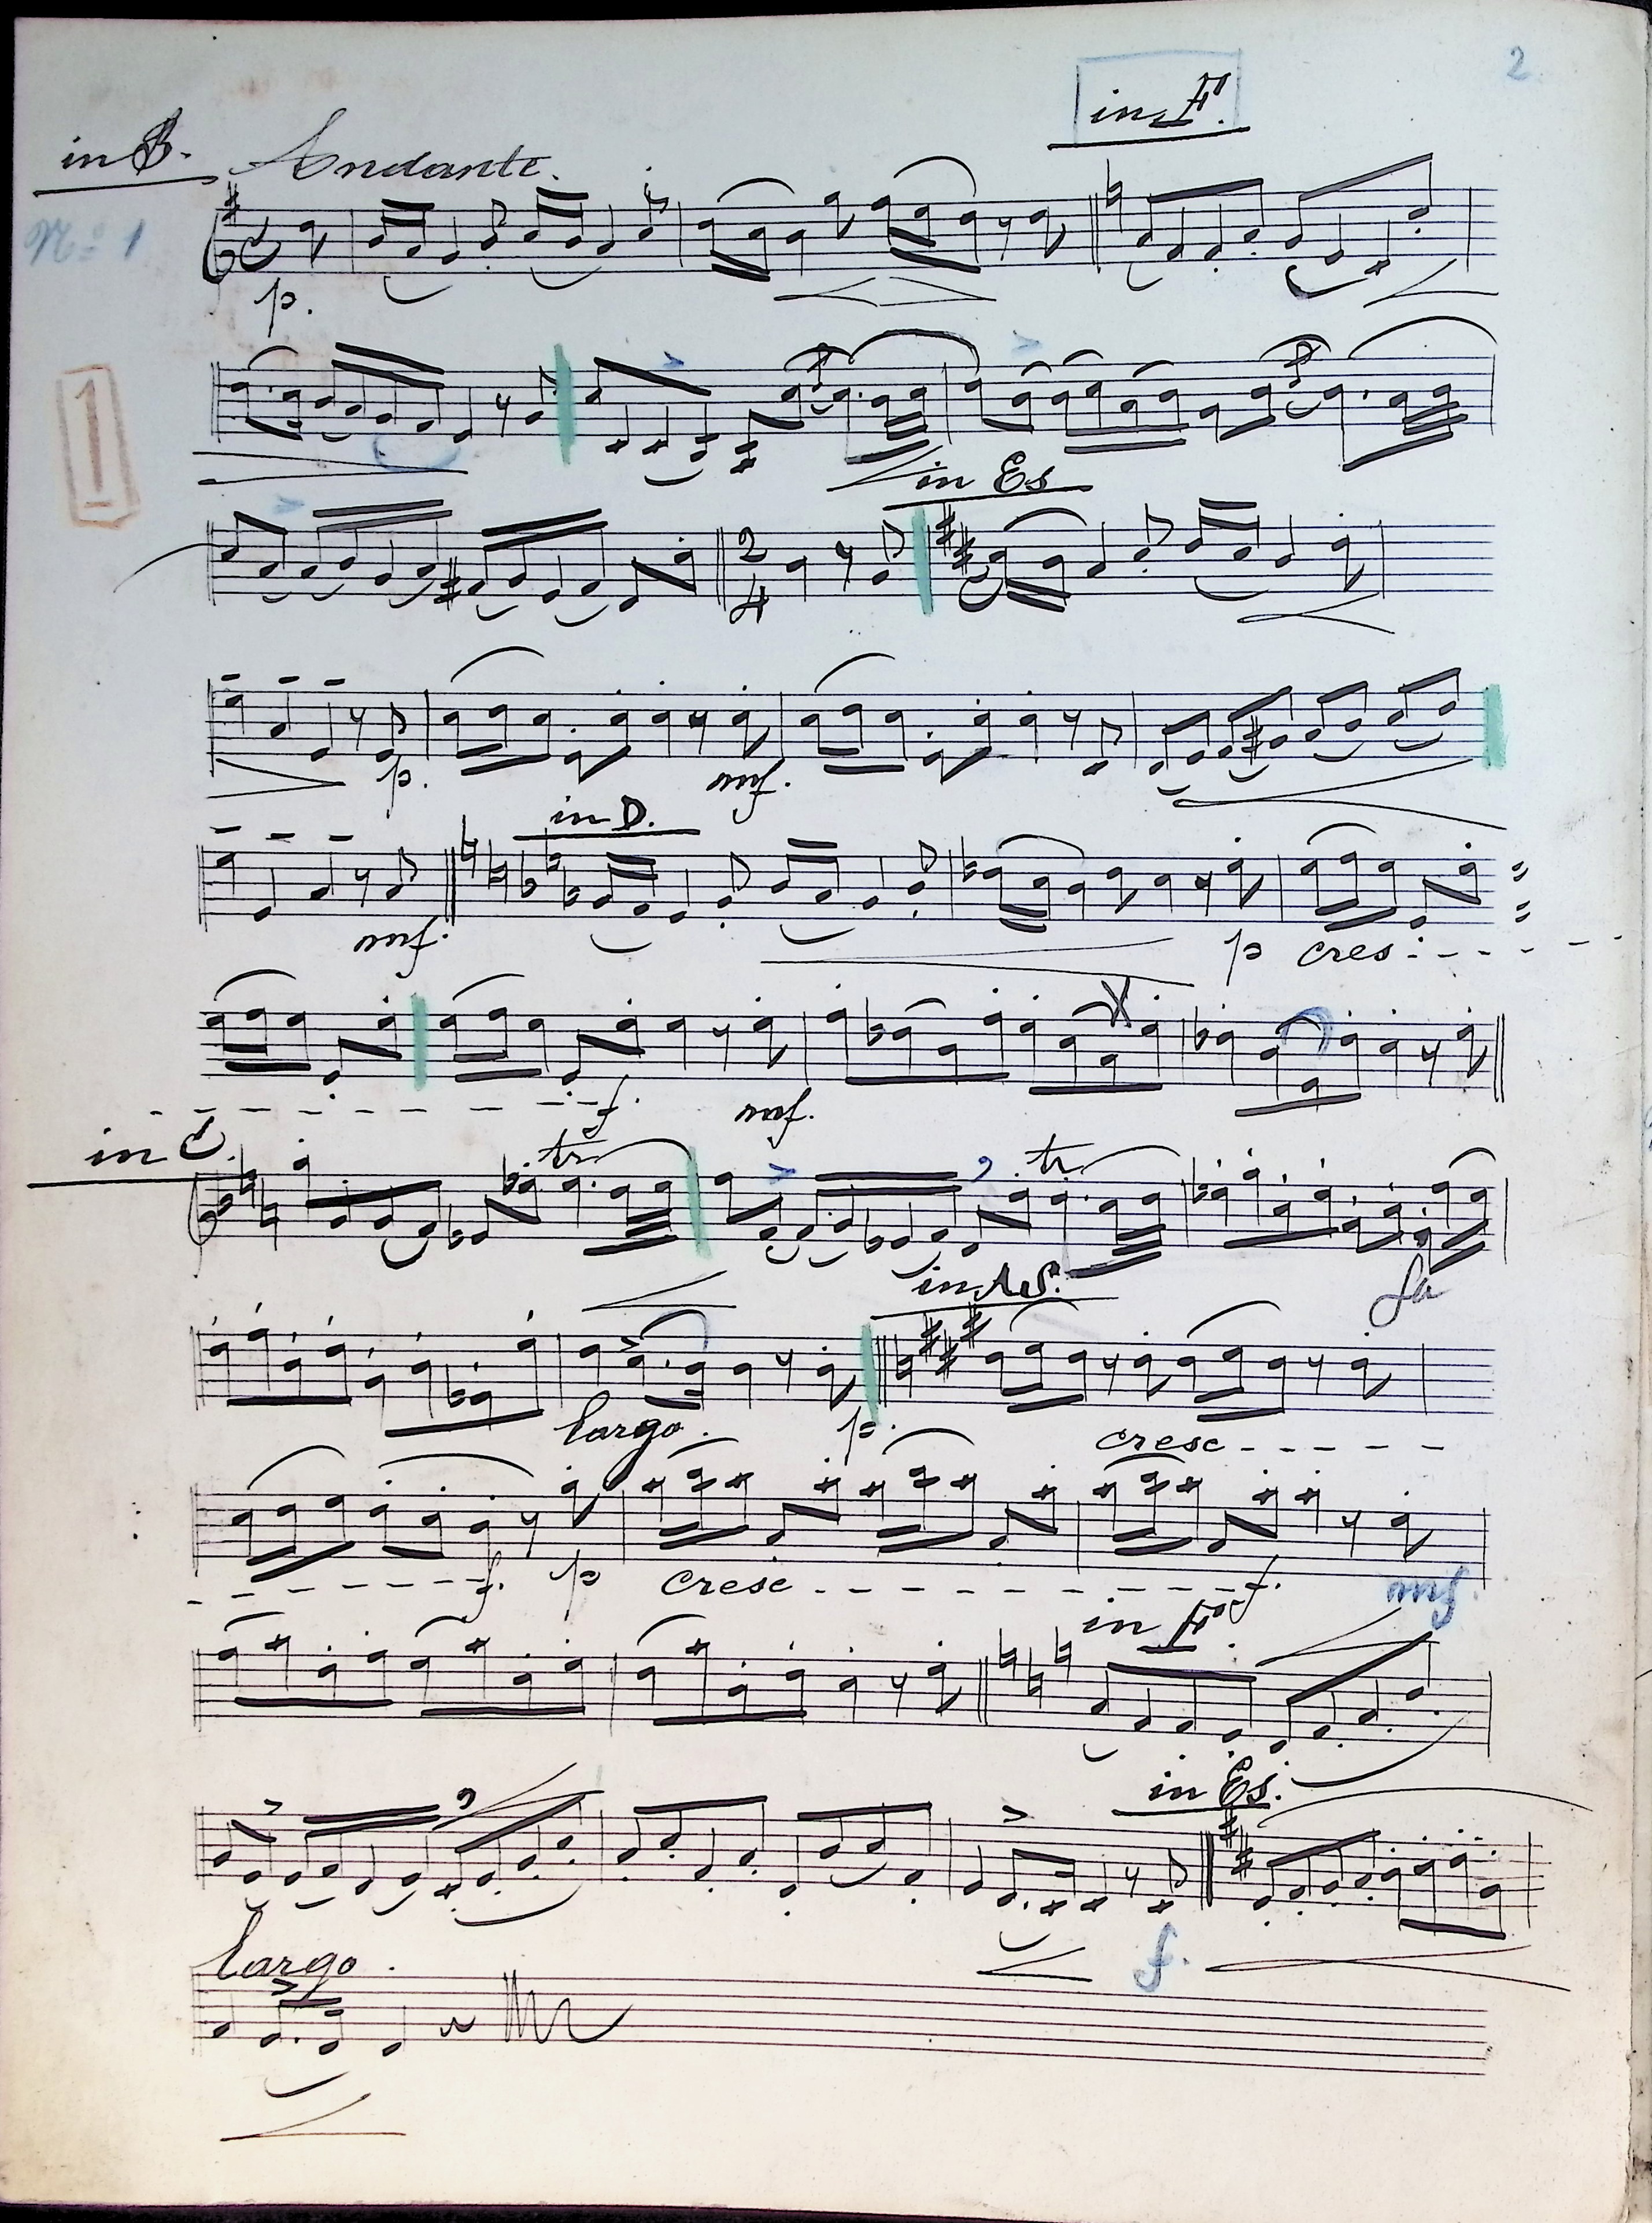 2
in F.
in B. Andante.
Nº 1
p.
1
in Es
2
4
p. mf.
in D.
mf. p cres:
f. mf.
in C.
tr tr
in As.
largo. p. cresc
f. p cresc f. mf.
in F
in Es.
f.
largo.